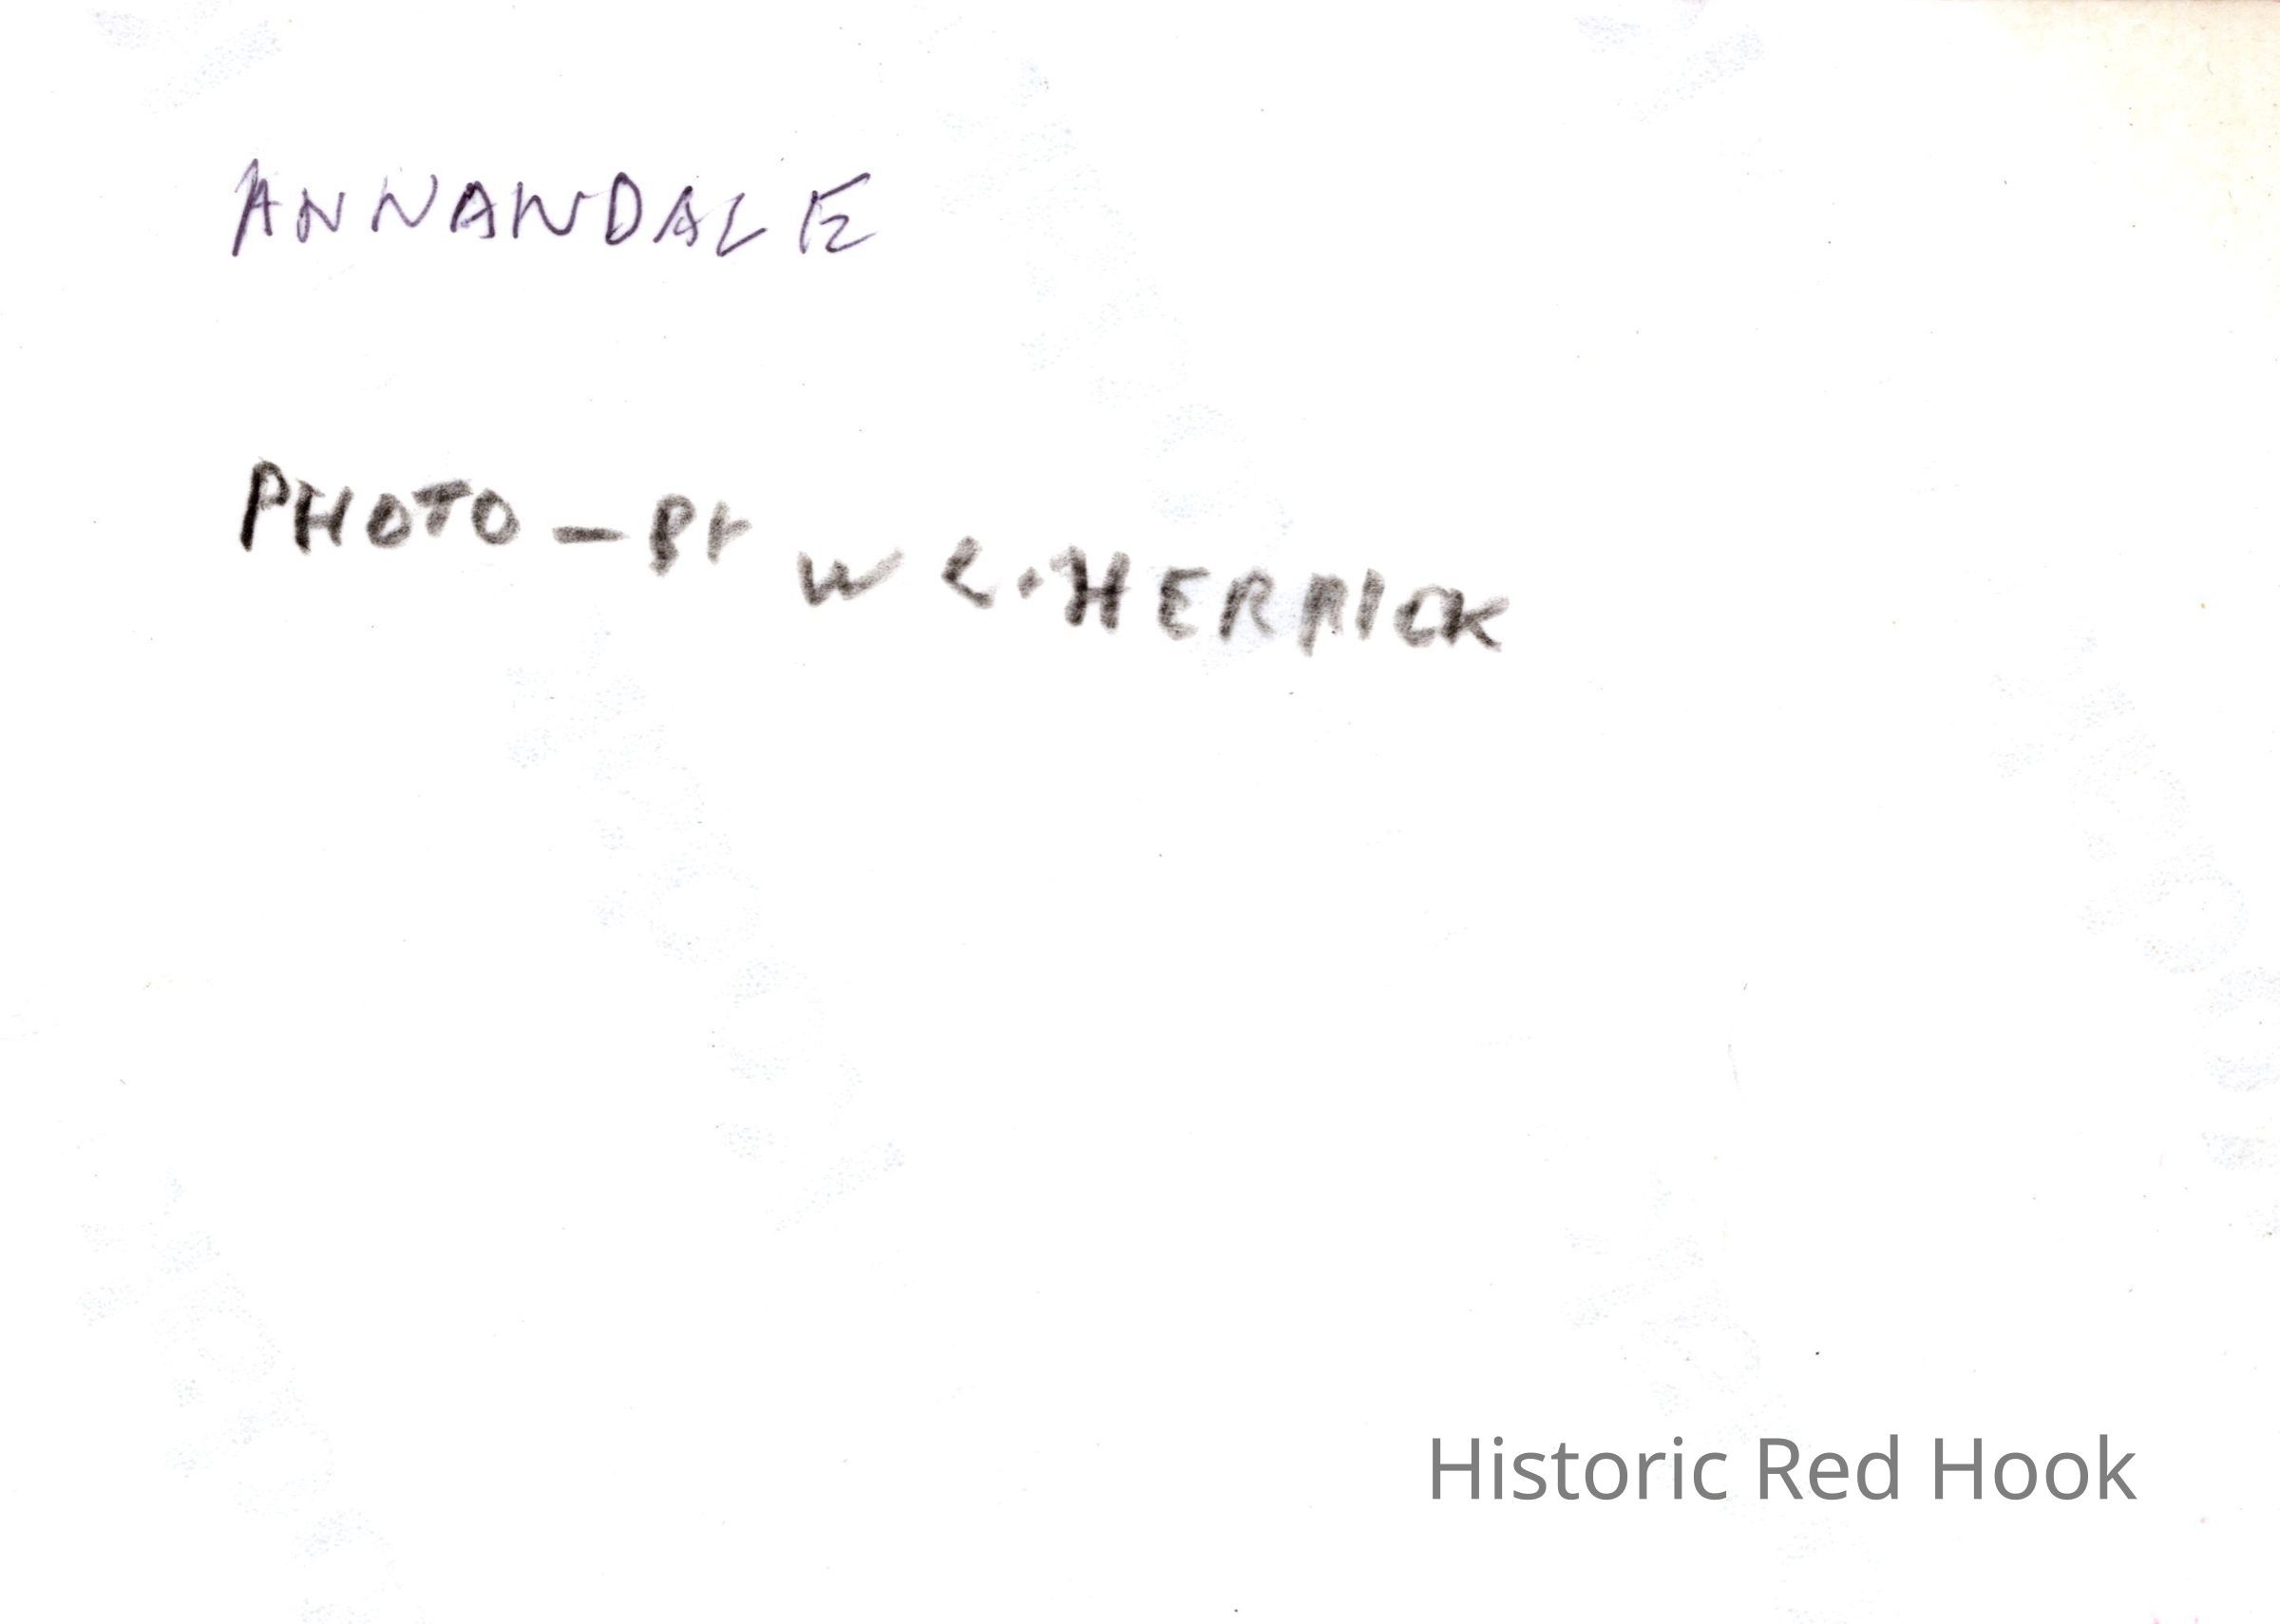 ANNANDALE
PHOTO — BY W L. HERRICK
Historic Red Hook